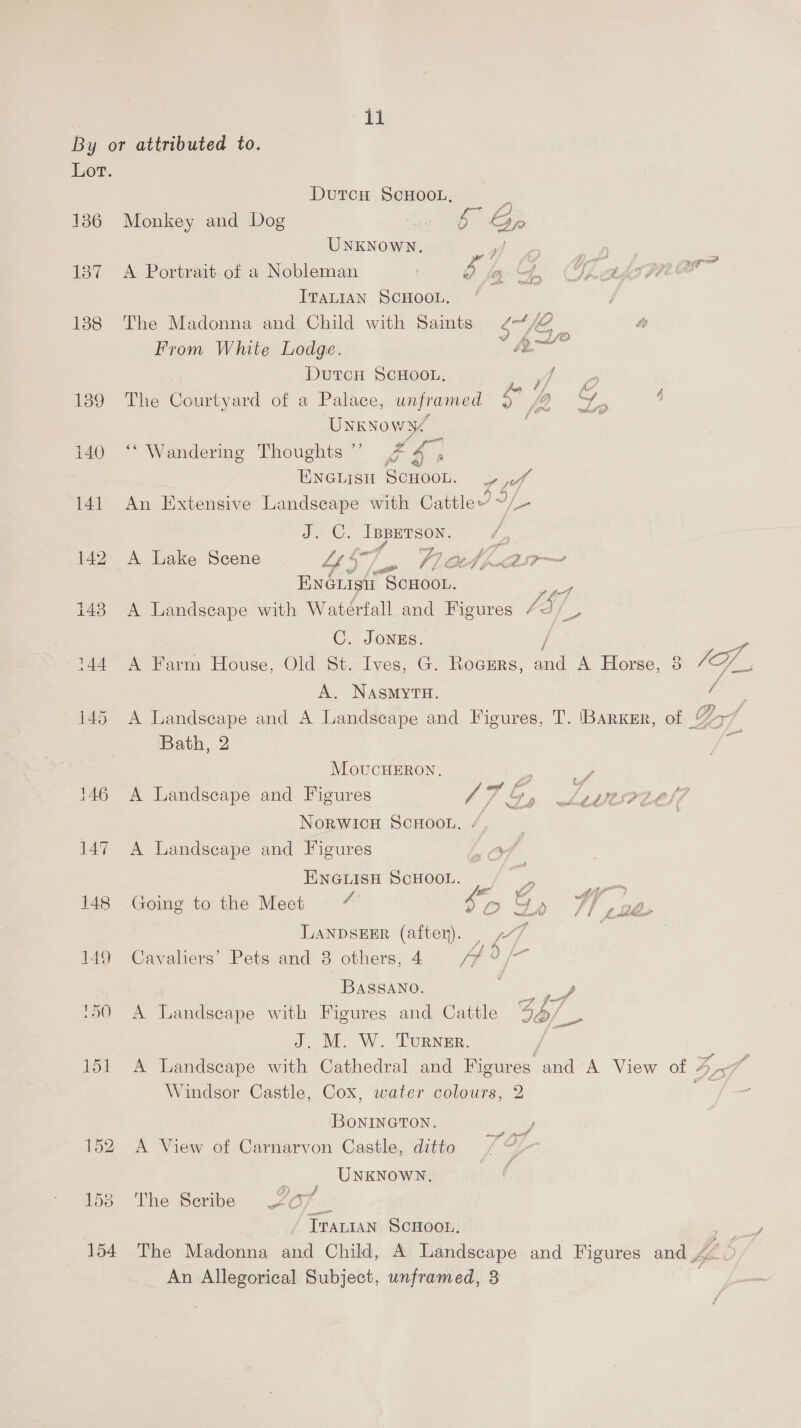 11
By or attributed to.
Lot.
Dutch School.
136 Monkey and Dog 5 Gs
Unknown.
137 A Portrait of a Nobleman
Italian School.
138 The Madonna and Child with Saints
From White Lodge.
Dutch School.
139 The Courtyard of a Palace, unframed
Unknown.
140 “Wandering Thoughts”
English School.
141 An Extensive Landscape with Cattle
J. C. Ibbetson.
142 A Lake Scene
English School.
143 A Landscape with Waterfall and Figures
C. Jones.
144 A Farm House, Old St. Ives, G. Rogers, and A Horse, 3 10/-
A. Nasmyth.
145 A Landscape and A Landscape and Figures, T. Barker, of
Bath, 2
Moucheron.
146 A Landscape and Figures
Norwich School.
147 A Landscape and Figures
English School.
148 Going to the Meet
Landseer (after).
149 Cavaliers’ Pets and 3 others, 4
Bassano.
150 A Landscape with Figures and Cattle
J. M. W. Turner.
151 A Landscape with Cathedral and Figures and A View of
Windsor Castle, Cox, water colours, 2
Bonington.
152 A View of Carnarvon Castle, ditto
Unknown.
153 The Scribe 20/-
Italian School.
154 The Madonna and Child, A Landscape and Figures and
An Allegorical Subject, unframed, 3